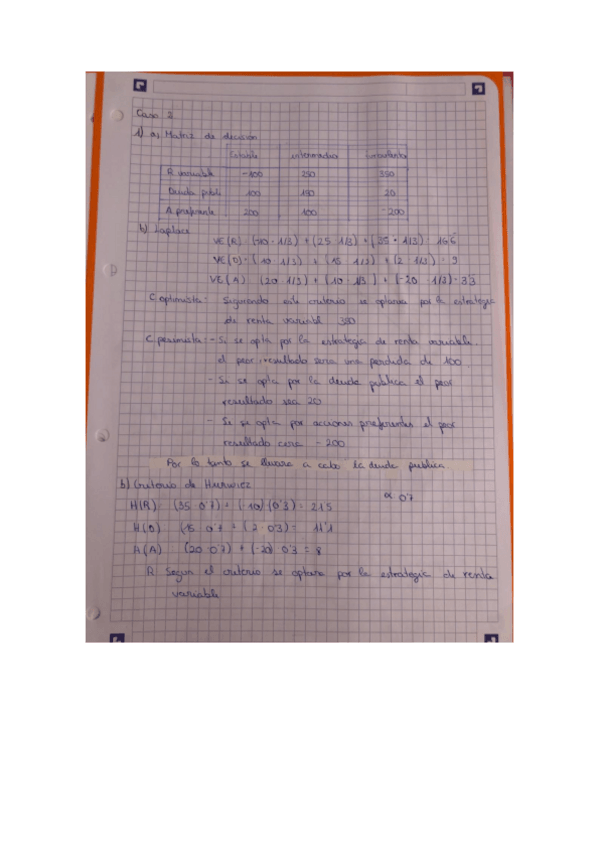 Caso 2
1) a) Matriz de decisión
Estable intermedio
R variable -100 250 350
Deuda públi 100 150 20
A preferente 200 100 -200
b) Laplace
VE(R) (-10 · 1/3) + (25 · 1/3) + (35 · 1/3) 16'6
VE(D) = (10 1/3) + (15 1/3) + (2 · 1/3) = 9
VE(A) (20 1/3) + (10 1/3) + (-20 1/3) = 3'3
C optimista: Siguiendo este criterio se optaria por la estrategia
de renta variable 350
C pesimista: - Si se opta por la estrategia de renta variable
el peor resultado sera una perdida de 100
- Si se opta por la deuda publica el peor
resultado sea 20
- Si se opta por acciones preferentes el peor
resultado cera - 200
Por lo tanto se llevara a cabo la deuda publica
b) Criterio de Hurwicz α 0'7
H(R) (35 0'7) + (-10) (0'3) = 21'5
H(D) (15 0'7 + (2 · 0'3) = 11'1
H(A) (20 · 0'7) + (-20) 0'3 = 8
R Segun el criterio se optara por la estrategia de renta
variable